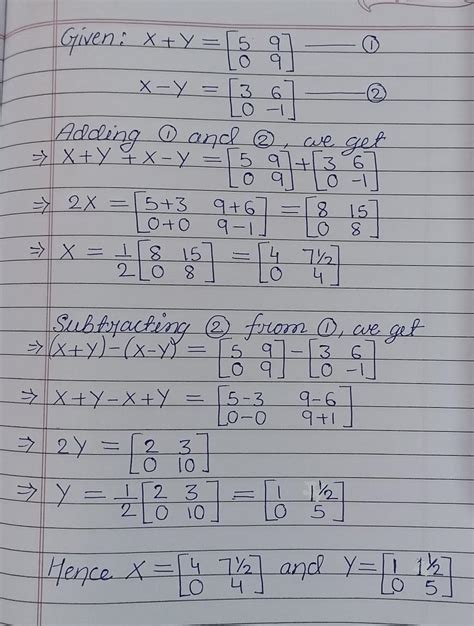 Given: X+Y = [5 9 —— ①
0 9]
X-Y = [3 6 —— ②
0 -1]
Adding ① and ②, we get
⇒ X+Y+X-Y = [5 9 + [3 6
0 9] 0 -1]
⇒ 2X = [5+3 9+6 = [8 15
0+0 9-1] 0 8]
⇒ X = 1/2 [8 15 = [4 7½
0 8] 0 4]
Subtracting ② from ①, we get
⇒ (X+Y)-(X-Y) = [5 9 - [3 6
0 9] 0 -1]
⇒ X+Y-X+Y = [5-3 9-6
0-0 9+1]
⇒ 2Y = [2 3
0 10]
⇒ Y = 1/2 [2 3 = [1 1½
0 10] 0 5]
Hence X = [4 7½ and Y = [1 1½
0 4] 0 5]